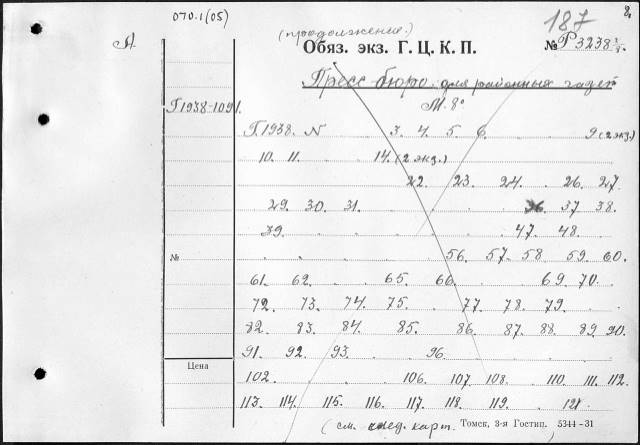 070.1(05)
187
2.
А
(продолжение.)
Обяз. экз. Г. Ц. К. П.
№ Р3238
Пресс-бюро для районных газет
М. 8°
Г1938-1091.
Г. 1938. N 3. 4. 5 6. 9 (2 экз.)
10. 11. 14. (2 экз.)
22. 23. 24. 26. 27.
29. 30. 31. 36. 37. 38.
39. 47. 48.
№ 56. 57. 58 59. 60.
61. 62. 65. 66. 69. 70.
72. 73. 74. 75. 77. 78. 79.
82. 83. 84. 85. 86. 87. 88. 89. 90.
91. 92. 93. 96.
Цена
102. 106. 107. 108. 110. 111. 112.
113. 114. 115. 116. 117. 118. 119. 121
(см. след. карт.) Томск, 3-я Гостип. 5344-31